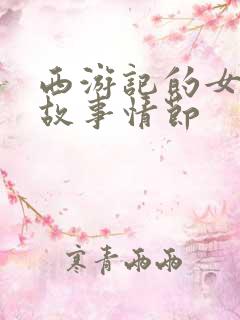 西游記的女
故事情節
寒青兩兩